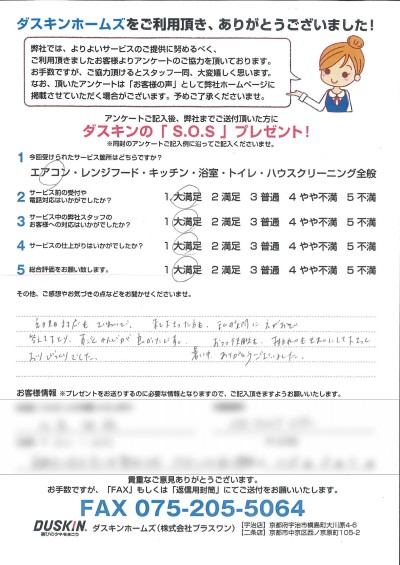 ダスキンホームズをご利用頂き、ありがとうございました！
弊社では、よりよいサービスのご提供に努めるべく、
ご利用頂きましたお客様よりアンケートのご協力を頂いております。
お手数ですが、ご協力頂けるとスタッフ一同、大変嬉しく思います。
なお、頂いたアンケートは「お客様の声」として弊社ホームページに
掲載させていただく場合がございます。予めご了承くださいませ。
アンケートご記入後、弊社までご送付頂いた方に
ダスキンの「S.O.S」プレゼント！
※同封のアンケートご記入例に沿ってご記入くださいませ。
1 今回受けられたサービス箇所はどちらですか？
エアコン・レンジフード・キッチン・浴室・トイレ・ハウスクリーニング全般
2 サービス前の受付や
電話対応はいかがでしたか？ 1 大満足 2 満足 3 普通 4 やや不満 5 不満
3 サービス中の弊社スタッフの
お客様への対応はいかがでしたか？ 1 大満足 2 満足 3 普通 4 やや不満 5 不満
4 サービスの仕上がりはいかがでしたか？ 1 大満足 2 満足 3 普通 4 やや不満 5 不満
5 総合評価をお願い致します。 1 大満足 2 満足 3 普通 4 やや不満 5 不満
その他、ご感想やお気づきの点などをお聞かせくださいませ。
おりびっくりでした。 暑い中、ありがとうございました。
お客様情報 ※プレゼントをお送りするのに必要な情報となりますので、ご記入頂きますようお願いいたします。
貴重なご意見ありがとうございます。
お手数ですが、「FAX」もしくは「返信用封筒」にてご送付をお願いいたします。
FAX 075-205-5064
DUSKIN 喜びのタネをまこう ダスキンホームズ（株式会社プラスワン） 【宇治店】京都府宇治市槇島町大川原4-6
【二条店】京都市中京区西ノ京原町105-2